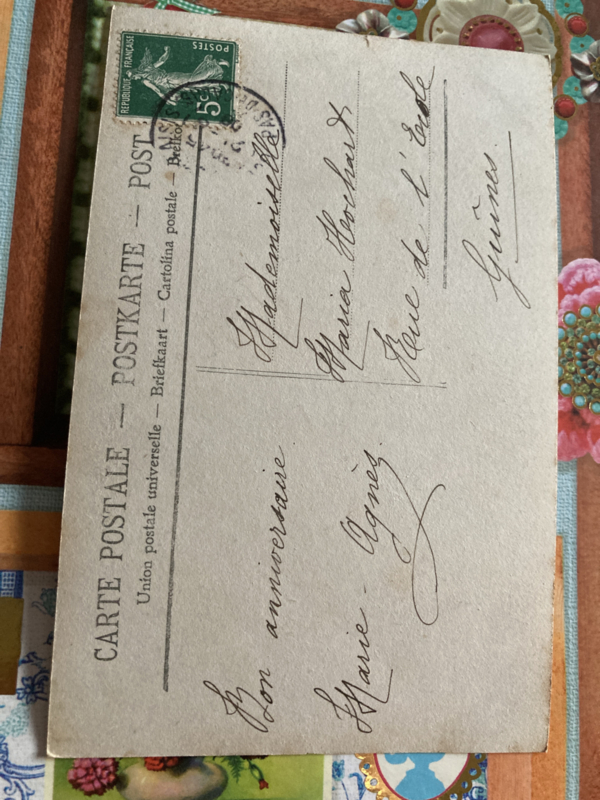 CARTE POSTALE — POSTKARTE — POST
Union postale universelle — Briefkaart — Cartolina postale — Brefkor
REPUBLIQUE FRANÇAISE
POSTES
5c
Bon anniversaire
Marie-Agnès
Mademoiselle
Maria Hochart
Rue de l'
Guînes